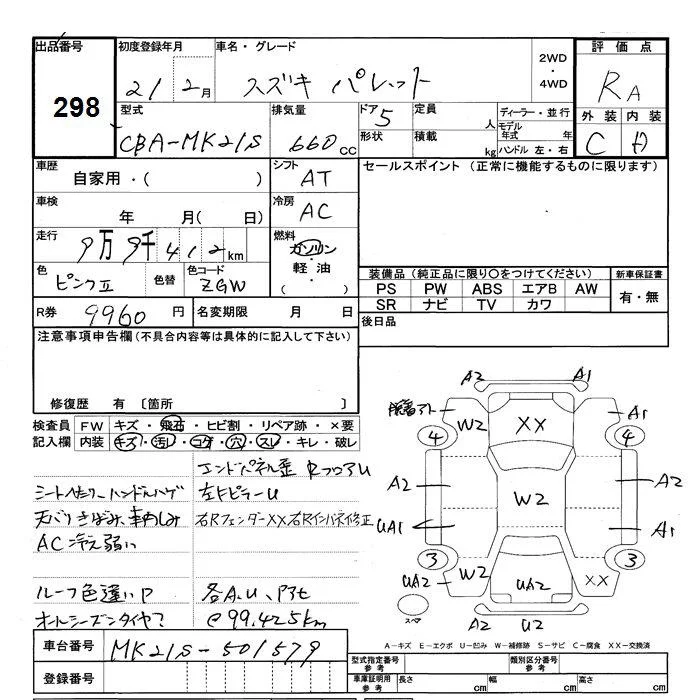 出品番号 初度登録年月 車名・グレード 2WD ・ 4WD 評価点
298 21 2月 スズキ パレット RA
型式 排気量 ドア 5 定員 人 ディーラー・並行 外装 内装
CBA-MK21S 660cc 形状 積載 kg モデル年式 年 ハンドル 左・右 C D
車歴 シフト セールスポイント(正常に機能するものに限ります)
自家用・( ) AT
車検 冷房
年 月( 日) AC
走行 燃料
9万9千412km ガソリン
色 色替 色コード 軽油 装備品(純正品に限り○をつけてください) 新車保証書
ピンクII ZGW ( ) PS PW ABS エアB AW 有・無
R券 9960円 名変期限 月 日 SR ナビ TV カワ
注意事項申告欄(不具合内容等は具体的に記入して下さい) 後日品
修復歴 有 〔箇所 〕
検査員 FW キズ・飛石・ヒビ割・リペア跡・×要
記入欄 内装 キズ・汚れ・コゲ・穴・スレ・キレ・破レ
エンドパネル歪 RフロアU
シートヘたり ハンドルハゲ 左FピラーU
天バリきばみ
右RフェンダーXX 右Rインパネ修正
AC冷え弱い
ルーフ色違いP 各A.U、P他
オールシーズンタイヤ @99,425km
A2 A1
W2 XX A1
4 4
A2 W2 A2
UA1 A1
3 3
UA2 W2 UA2 XX
スペア A2 U2
車台番号 MK21S-501579
登録番号
A-キズ E-エクボ U-凹み W-補修跡 S-サビ C-腐食 XX-交換済
型式指定番号 参考 類別区分番号 参考
車庫証明用 参考 長さ cm 幅 cm 高さ cm